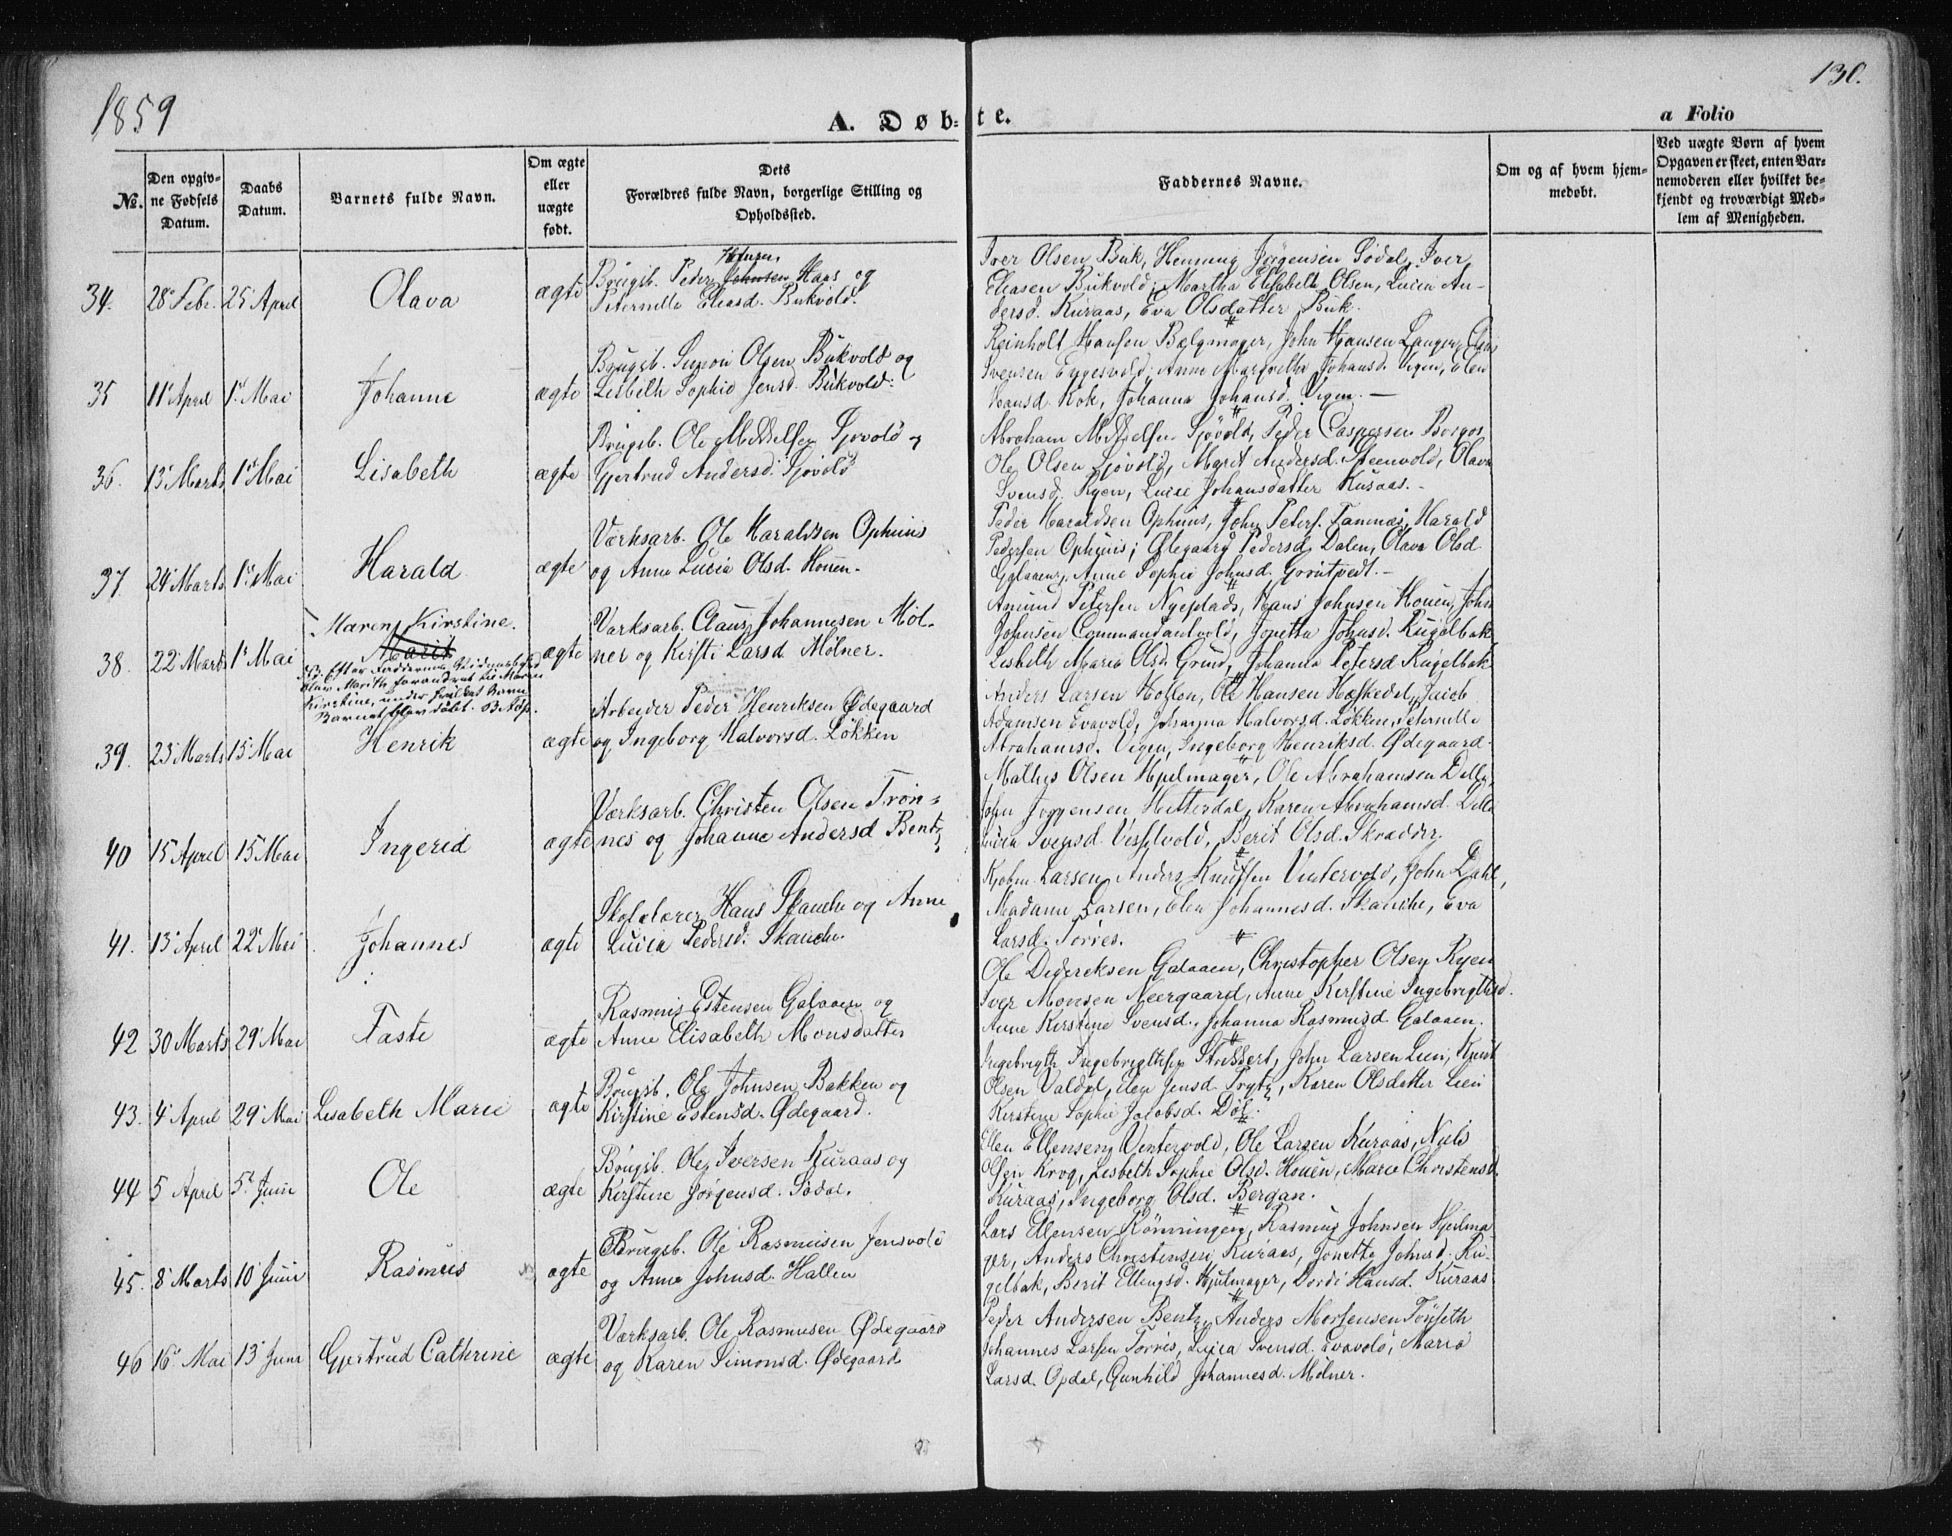 1859
130.
A. Døbte.
a Folio
No.
Den opgivne Fødsels Datum.
Daabs Datum.
Barnets fulde Navn.
Om ægte eller uægte født.
Dets Forældres fulde Navn, borgerlige Stilling og Opholdssted.
Faddernes Navne.
Om og af hvem hjemmedøbt.
Ved uægte Børn af hvem Opgaven er skeet, enten Barnemoderen eller hvilket bekjendt og troværdigt Medlem af Menigheden.
34. 28 Febr. 25 April Olava ægte
Brugsb. Peder Johnsen Haas og
Peternella Eliasd. Bukvold.
Iver Olsen Buk, Henning Jörgensen Södal, Iver
Eliasen Bukvold, Martha Elisabeth Olsen, Lucia An-
dersd. Kuraas, Eva Olsdatter Buk.
35 11 April 1 Mai Johanne ægte
Brugsb. Simon Olsen Bukvold og
Lisbeth Sophie Jensd. Bukvold.
Reinholt Hansen Bælgmager, John Hansen Langen,
Svensen Eggesvold, Anne Johansd. Vigen, Elen
Hansd. Kok, Johanna Johansd. Vigen. —
36. 13 Marts 1 Mai Lisabeth ægte
Brugsb. Ole Mikkelsen Sjövold og
Gjertrud Andersd. Sjövold
Abraham Mikkelsen Sjövold, Peder Caspersen Borgos
Ole Olsen Sjövold, Marit Andersd. Steenvold, Olava
Svensd. Ryen, Luise Johansdatter Kuraas. -
37 24 Marts 1 Mai Harald ægte
Værksarb. Ole Haraldsen Ophuus
og Anne Lucia Olsd. Houen.
Peder Haraldsen Ophuus, John Peters. Tamnæs, Harald
Pedersen Ophuus; Ølegaard Pedersd. Dalen, Olava Olsd.
Galaaen, Anne Sophie Johnsd. Gröntvedt. -
Maren Kirstine.
38. 22 Marts 1 Mai Marit ægte
NB. Efter Faddernes Vidnesbyrd
blev Marith forandret til Maren
Kirstine, under hvilket Navn
Barnet blev döbt.
Værksarb. Claus Johannesen Möl-
ner og Kirsti Larsd. Mölner.
Amund Petersen Nyeplads, Hans Johnsen Houen, John
Johnsen Commandantvold, Jonetta Johnsd. Rugelbak
Lisbeth Maria Olsd. Grind, Johanna Petersd. Rugelbak
39. 23 Marts 15 Mai Henrik ægte
Arbeider Peder Henriksen Ødegaard
og Ingeborg Halvorsd. Løkken
Anders Larsen Holden, Ole Hansen Hæskedal, Jacob
Adamsen Evavold, Johanna Halvorsd. Løkken, Peternille
Abrahamsd. Vigen, Ingeborg Henriksd. Ødegaard.
40 15 April 15 Mai Ingerid ægte
Værksarb. Christen Olsen Trön-
nes og Johanne Andersd. Bentz
Mathis Olsen Hjelmager, Ole Abrahamsen Dille,
John Jörgensen Hitterdal, Karen Abrahamsd. Dille
Lucia Svensd. Berit Olsd. Skrædder
41. 13 April 22 Mai Johannes ægte
Skolelærer Hans Skanche og Anne
Lucia Pedersd. Skanche.
Kjöbm. Larsen, Anders Knutsen Vintervold, John Dahl,
Madame Larsen, Elen Johannesd. Skanche, Eva
Larsd. Torres.
42 30 Marts 29 Mai Faste ægte
Rasmus Estensen Galaaen og
Anne Elisabeth Monsdatter
Ole Didericksen Galaaen, Christopher Olsen Ryen
Iver Monsen Neergaard, Anne Kirstine Ingebrigtsd.
Anne Kirstine Svensd., Johanna Rasmusd. Galaaen.
43. 4 April 29 Mai Lisabeth Marie ægte
Brugsb. Ole Johnsen Bakken og
Kirstine Estensd. Ødegaard.
Ingebrigth Ingebrigtsen Stikkert, John Larsen Lien, Knut
Olsen Valdal, Elen Jensd. Trytz, Karen Olsdatter Lien
Kirstine Sophie Jacobsd. Döl.
44 5 April 5 Juni Ole ægte
Brugsb. Ole Iversen Kuraas og
Kirstine Jörgensd. Södal.
Ellen Ellensen Vintervold, Ole Larsen Kuraas, Niels
Olsen Krog, Lisbeth Sophie Olsd. Houen, Marie Christensd.
Kuraas, Ingeborg Olsd. Bergan.
45. 8 Marts 10 Juni Rasmus ægte
Brugsb. Ole Rasmusen Jensvold
og Anne Johnsd. Hallen
Lars Ellensen Rönningen, Rasmus Johnsen Hjelma-
ger, Anders Christensen Kuraas, Jonetta Johnsd. Ru-
gelbak, Berit Ellengsd. Hjelmager, Dordi Hansd. Kuraas
46 16 Mai 13 Juni Gjertrud Cathrine ægte
Værksarb. Ole Rasmusen Ødegaard
og Karen Simonsd. Ødegaard
Peder Andersen Bentz, Anders Mortensen Töyseth
Johannes Larsen Torres, Lucia Svensd. Evavold, Maria
Larsd. Opdal, Gunhild Johannesd. Mölner.